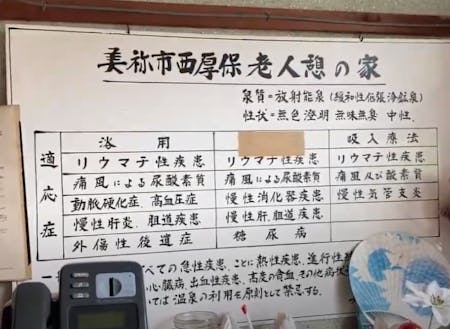 美祢市西厚保老人憩の家
泉質=放射能泉(緩和性低張冷鉱泉)
性状=無色澄明 無味無臭 中性.
適応症
浴用 吸入療法
リウマテ性疾患 リウマテ性疾患 リウマテ性疾患
痛風による尿酸素質 痛風による尿酸素質 痛風及び酸素質
動脈硬化症、高血圧症 慢性消化器疾患 慢性気管支炎
慢性肝炎、胆道疾患 慢性肝、胆道疾患
外傷性後遺症 糖尿病
べての急性疾患、ことに熱性疾患、進行性
心臓病、出血性疾患、高度の貧血、その他病
ては温泉の利用を原則として禁忌する。